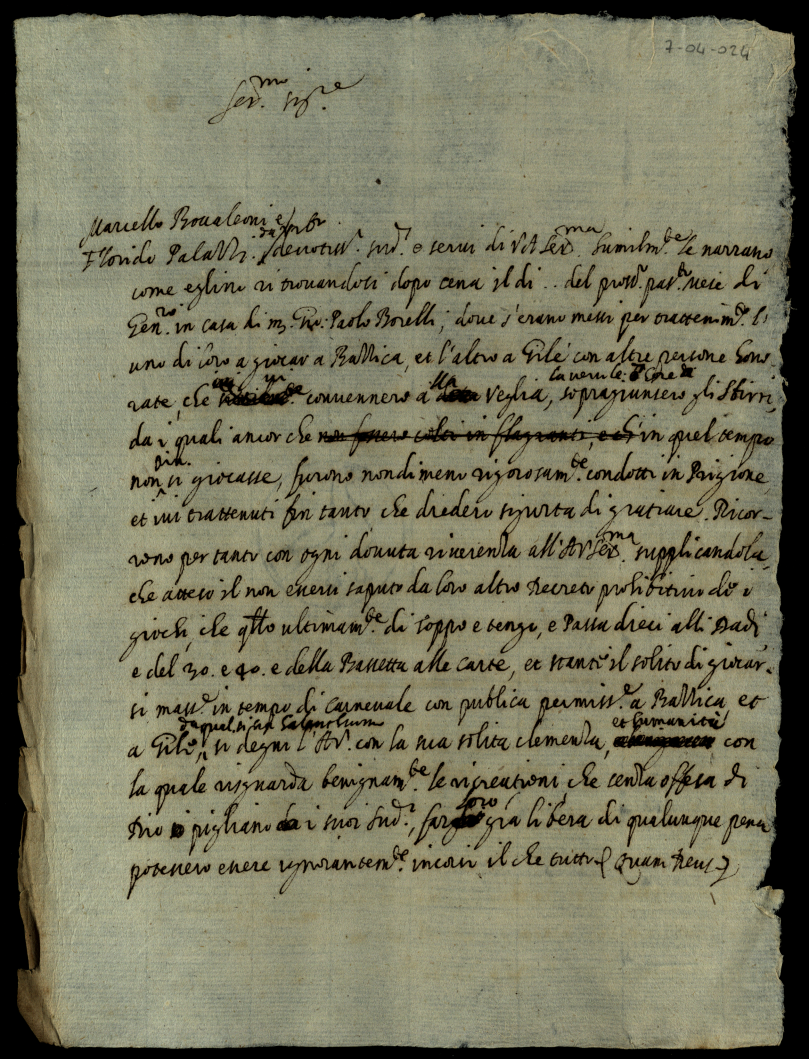 7-04-024
Ser.mo Sig.re
Marcello Bovaleoni e
Florido Palazzi devotiss.i sud.i e servi di V A Ser.ma humilm.te le narrano
come eglino ritrovandosi dopo cena il di .. del pross.o pas.to mese di
Gen.ro in casa di m. Gio: Paolo Borelli, dove s'erano messi per trattenim.to l'
uno di loro a giocar a Bazzica, et l'altro a Gilè con altre persone hono-
rate, che convennero a alla Veglia, sopragiunsero gli Sbirri,
da i quali ancor che non fossero colti in flagranti, e ch' in quel tempo
non più si giocasse, furono nondimeno rigorosam.te condotti in Prigione,
et ivi trattenuti fin tanto che diedero sigurtà di gratiare. Ricor-
rono per tanto con ogni dovuta riverenza all'AV Ser.ma supplicandola,
che atteso il non essersi saputo da loro altro Decreto prohibitivo de i
giochi, che q.llo ultimam.te di soppo e tengo, e Passa dieci alli Dadi
e del 30. e 40. e della Bassetta alle carte, et stante il solito di giocar-
si mass.e in tempo di Carnevale con publica permiss.e a Bazzica et
a Gilè, si degni l'AV. con la sua solita clemenza, et humanità con
la quale risguarda benignam.te le ricreationi, che senza offesa di
Dio si pigliano da i suoi sud.i, far loro gratia libera di qualunque pena
potessero essere ignorantem.te incorsi il che tutto Quam Deus